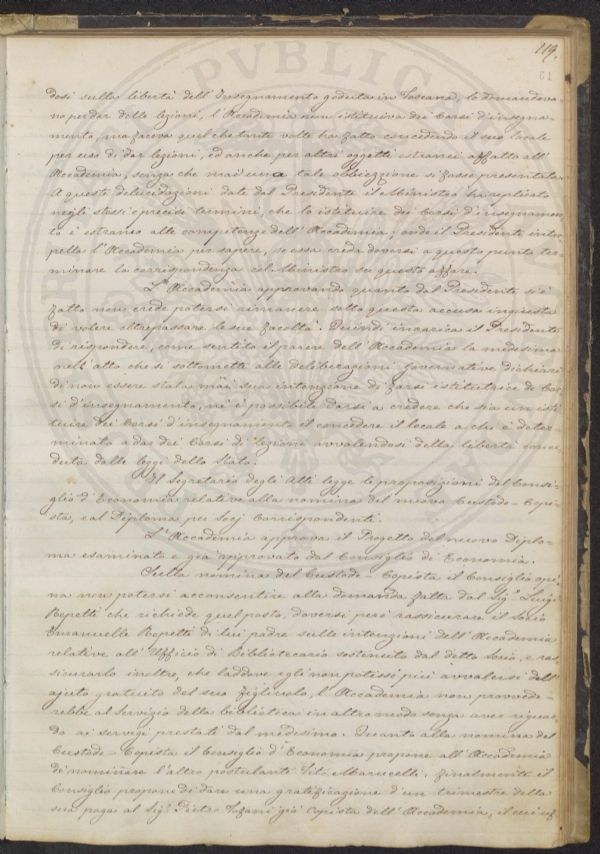 119.
61
dosi sulla libertà dell'Insegnamento goduta in Toscana, lo domandava-
no per dar delle lezioni, l'Accademia non istituiva dei Corsi d'insegna-
mento, ma faceva quel che tante volte ha fatto concedendo il suo locale
per uso di dar lezioni, ed anche per altri oggetti estranei affatto all'
Accademia, senza che mai una tale obbiezzione si fosse presentata.
A queste delucidazioni date dal Presidente il Ministro ha replicato
negli stessi precisi termini, che lo istituire dei Corsi d'insegnamen-
to è estraneo alle competenze dell'Accademia; onde il Presidente inter-
pella l'Accademia per sapere, se essa creda doversi a questo punto ter-
minare la corrispondenza col Ministro su questo affare.
L'Accademia approvando quanto dal Presidente si è
fatto non crede potersi rimanere sotto questa accusa ingiusta
di volere oltrepassare le sue facoltà. Quindi incarica il Presidente
di rispondere, come sentito il parere dell'Accademia la medesima
nell'atto che si sottomette alle deliberazioni governative dichiari
di non essere stata mai sua intenzione di farsi istitutrice di Cor-
si d'insegnamento, nè è possibile darsi a credere che sia un isti-
tuire dei Corsi d'insegnamento il concedere il locale a chi è deter-
minato a dar dei Corsi di lezioni avvalendosi della libertà conce-
duta dalle leggi dello Stato.
Il Segretario degli Atti legge le proposizioni del Consi-
glio d'Economia relative alla nomina del nuovo Custode-Copi-
sta, e al Diploma pei Socj Corrispondenti.
L'Accademia approva il Progetto del nuovo Diplo-
ma esaminato e già approvato dal Consiglio di Economia.
Sulla nomina del Custode-Copista il Consiglio opi-
na non potersi acconsentire alla domanda fatta dal Sig. Luigi
Repetti che richiede quel posto, doversi però rassicurare il Socio
Emanuelle Repetti di lui padre sulle intenzioni dell'Accademia
relative all'Uffizio di Bibliotecario sostenuto dal detto Socio, e ras-
sicurarlo inoltre, che laddove egli non potesse più avvalersi dell'
ajuto gratuito del suo figliuolo, l'Accademia non provvede-
rebbe al servizio della biblioteca in altro modo senza aver riguar-
do ai servigi prestati dal medesimo. Quanto alla nomina del
Custode-Copista il Consiglio d'Economia propone all'Accademia
di nominare l'altro postulante Tito Marucelli. Finalmente il
Consiglio propone di dare una gratificazione d'un trimestre della
sua paga al Sig. Pietro già Copista dell'Accademia, il cui uf